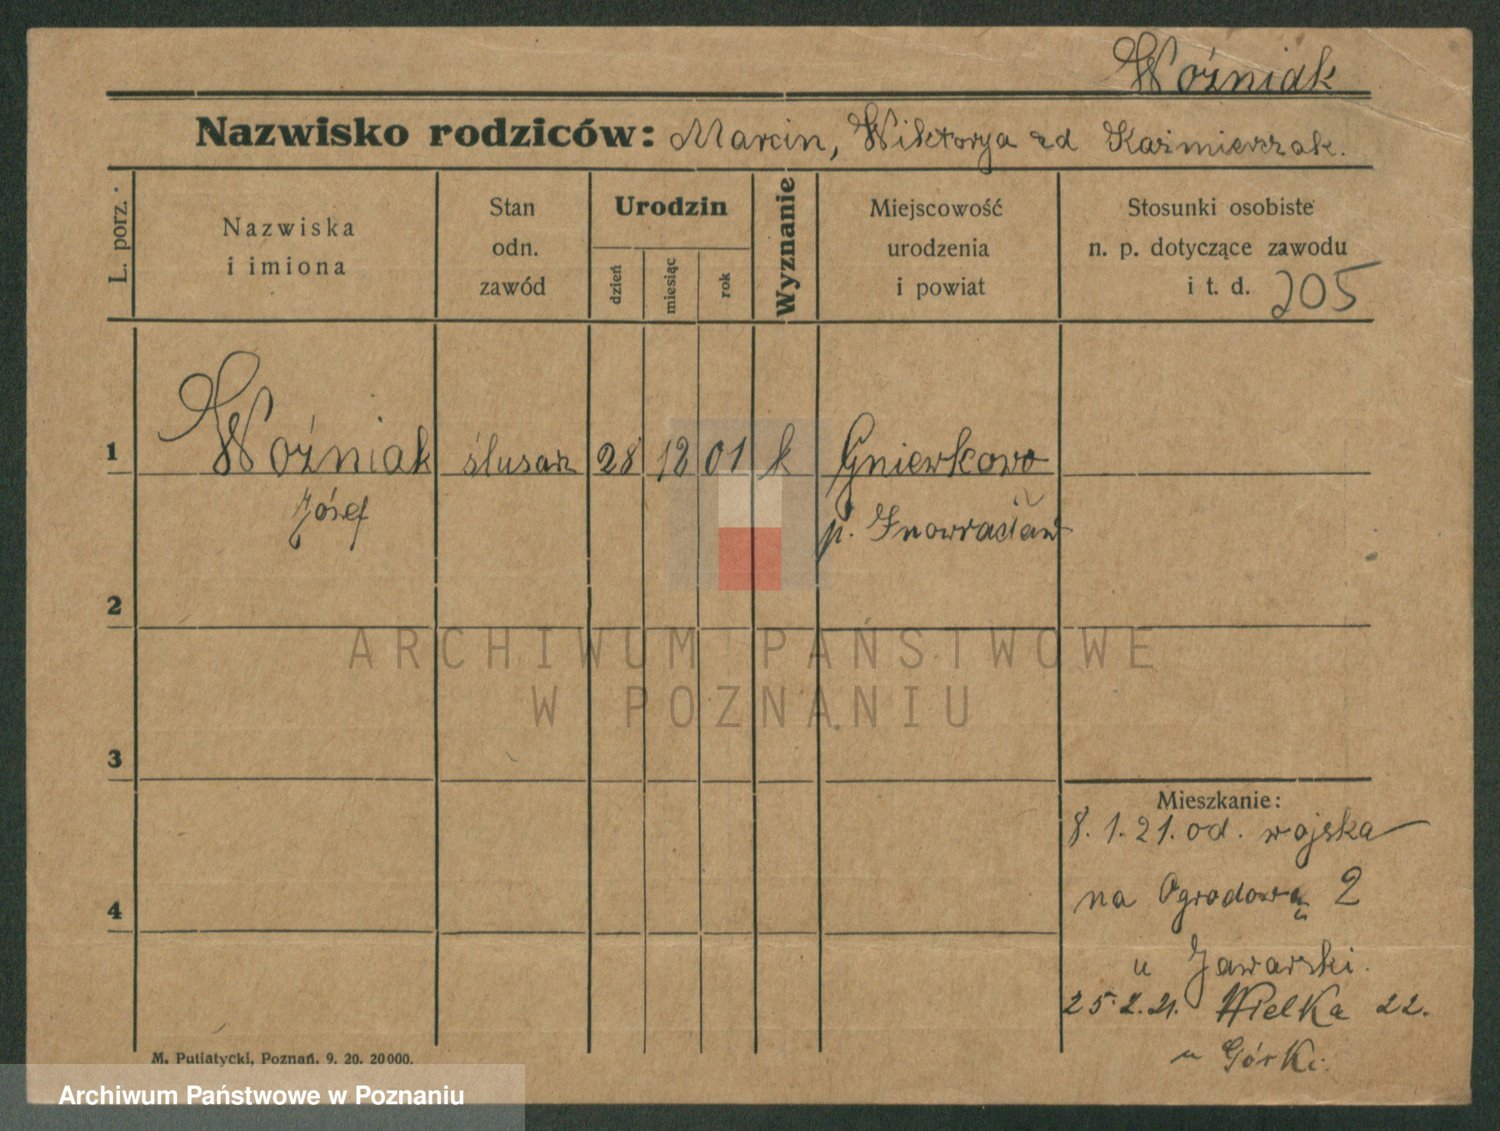 Woźniak
Nazwisko rodziców: Marcin, Wiktorya zd Kaźmierzak.
L. porz.
Nazwiska
i imiona
Stan
odn.
zawód
Urodzin
dzień
miesiąc
rok
Wyznanie
Miejscowość
urodzenia
i powiat
Stosunki osobiste
n. p. dotyczące zawodu
i t. d. 205
1 Woźniak ślusarz 28 12 01 k Gniewkowo
Józef p. Inowracław
2
ARCHIWUM PAŃSTWOWE
W POZNANIU
3
Mieszkanie:
8.1.21. od. wojska
4 na Ogrodową 2
u Jawarski.
25.2.21. Wielka 22.
u Górki.
M. Putiatycki, Poznań. 9. 20. 20000.
Archiwum Państwowe w Poznaniu